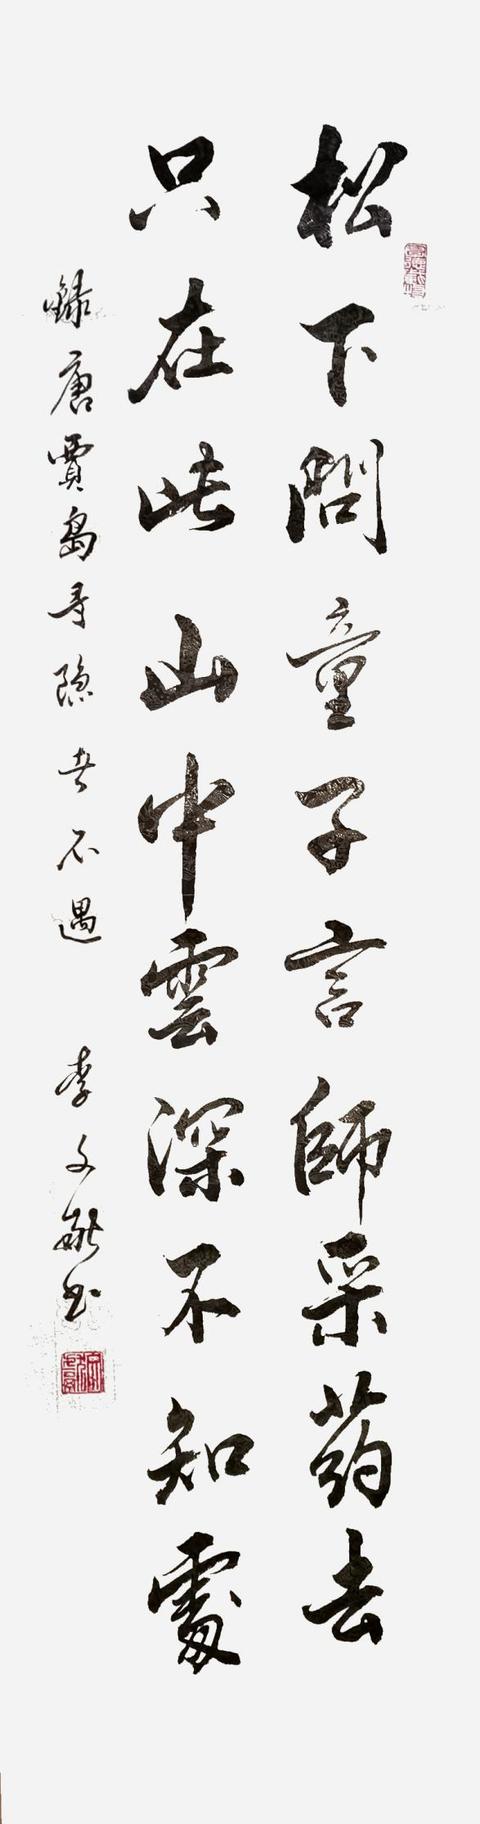 松下問童子言師采药去
只在此山中雲深不知處
録唐賈島寻隐者不遇 李文献书